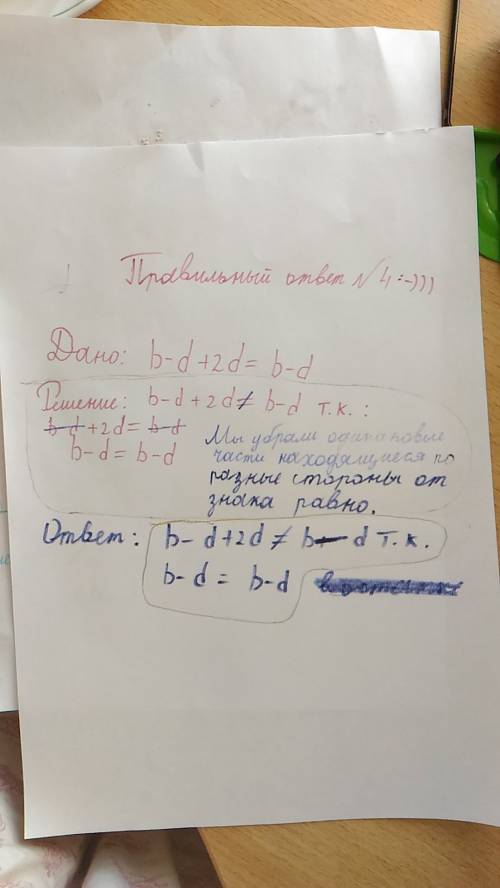 Правильный ответ №4:-)))
Дано: b-d+2d= b-d
Решение: b-d+2d≠ b-d т.к.:
b-d+2d= b-d
b-d = b-d
Мы убрали одинаковые
части находящиеся по
разные стороны от
знака равно.
Ответ: b- d+2d ≠ b- d т.к.
b-d = b-d